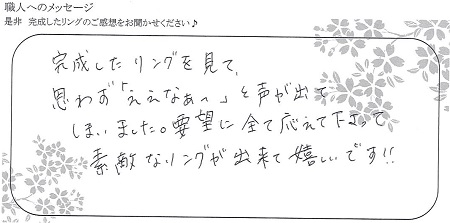 職人へのメッセージ
是非 完成したリングのご感想をお聞かせください♪
完成したリングを見て、
思わず「ええなぁ〜」と声が出て
しまいました。要望に全て応えて下さって
素敵なリングが出来て嬉しいです!!